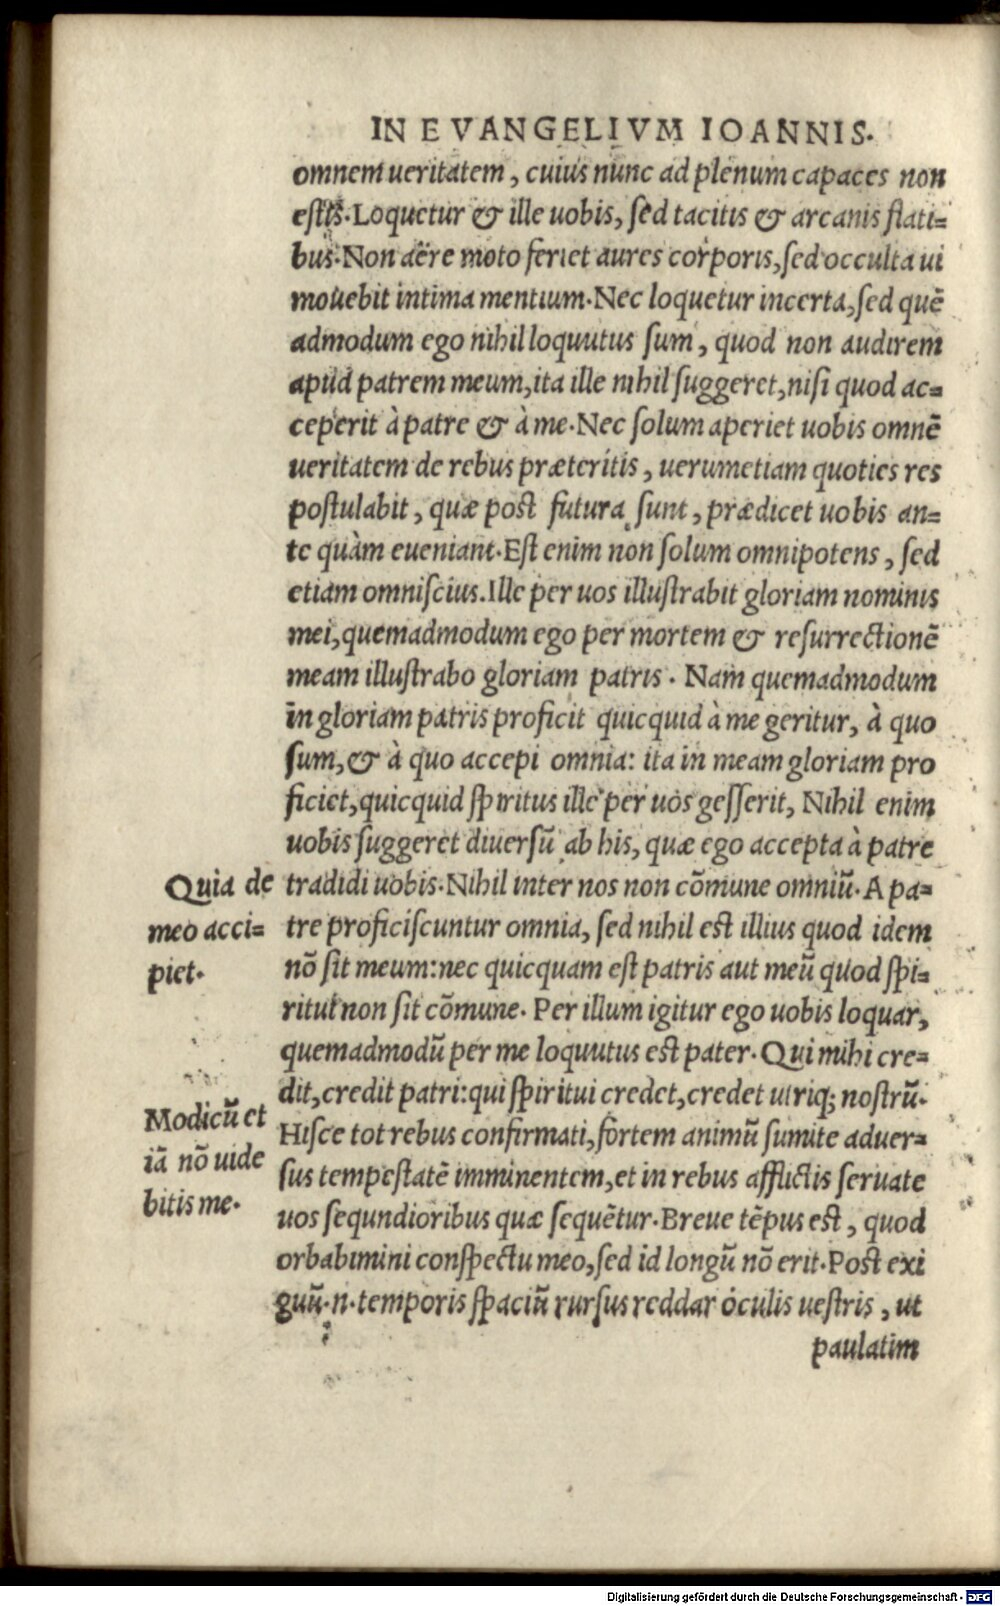 IN EVANGELIVM IOANNIS.
omnem ueritatem, cuius nunc ad plenum capaces non
estis. Loquetur & ille uobis, sed tacitis & arcanis flati=
bus. Non aëre moto feriet aures corporis, sed occulta ui
mouebit intima mentium. Nec loquetur incerta, sed quē
admodum ego nihil loquutus sum, quod non audirem
apud patrem meum, ita ille nihil suggeret, nisi quod ac=
ceperit à patre & à me. Nec solum aperiet uobis omnē
ueritatem de rebus præteritis, uerumetiam quoties res
postulabit, quæ post futura sunt, prædicet uobis an=
te quàm eueniant. Est enim non solum omnipotens, sed
etiam omniscius. Ille per uos illustrabit gloriam nominis
mei, quemadmodum ego per mortem & resurrectionē
meam illustrabo gloriam patris. Nam quemadmodum
in gloriam patris proficit quicquid à me geritur, à quo
sum, & à quo accepi omnia: ita in meam gloriam pro
ficiet, quicquid spiritus ille per uos gesserit, Nihil enim
uobis suggeret diuersū ab his, quæ ego accepta à patre
Quia de
meo acci=
piet.
tradidi uobis. Nihil inter nos non cōmune omniū. A pa=
tre proficiscuntur omnia, sed nihil est illius quod idem
nō sit meum: nec quicquam est patris aut meū quod spi=
ritui non sit cōmune. Per illum igitur ego uobis loquar,
quemadmodū per me loquutus est pater. Qui mihi cre=
dit, credit patri: qui spiritui credet, credet utriq; nostrū.
Modicū et
iā nō uide
bitis me.
Hisce tot rebus confirmati, fortem animū sumite aduer=
sus tempestatē imminentem, et in rebus afflictis seruate
uos sequndioribus quæ sequētur. Breue tēpus est, quod
orbabimini conspectu meo, sed id longū nō erit. Post exi
guū.n. temporis spaciū rursus reddar oculis uestris, ut
paulatim
Digitalisierung gefördert durch die Deutsche Forschungsgemeinschaft - DFG